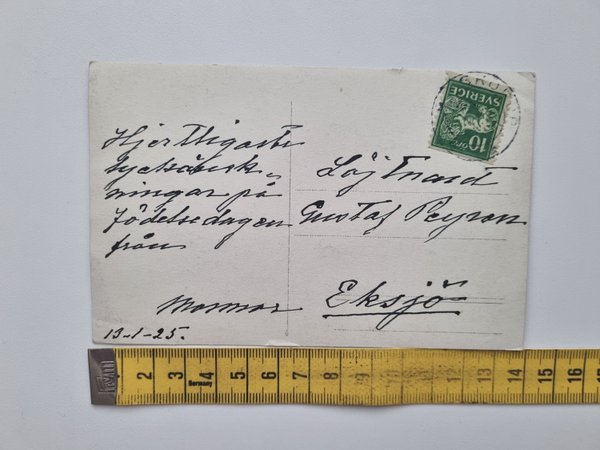 Hjertligaste
lyckönsk-
ningar på
födelsedagen
från
Mormor
13-1-25.
Löjtnant
Gustaf Peyron
Eksjö
SVERIGE
10
ÖRE
1 2 3 4 5 6 7 8 9 10 11 12 13 14 15 16
Germany